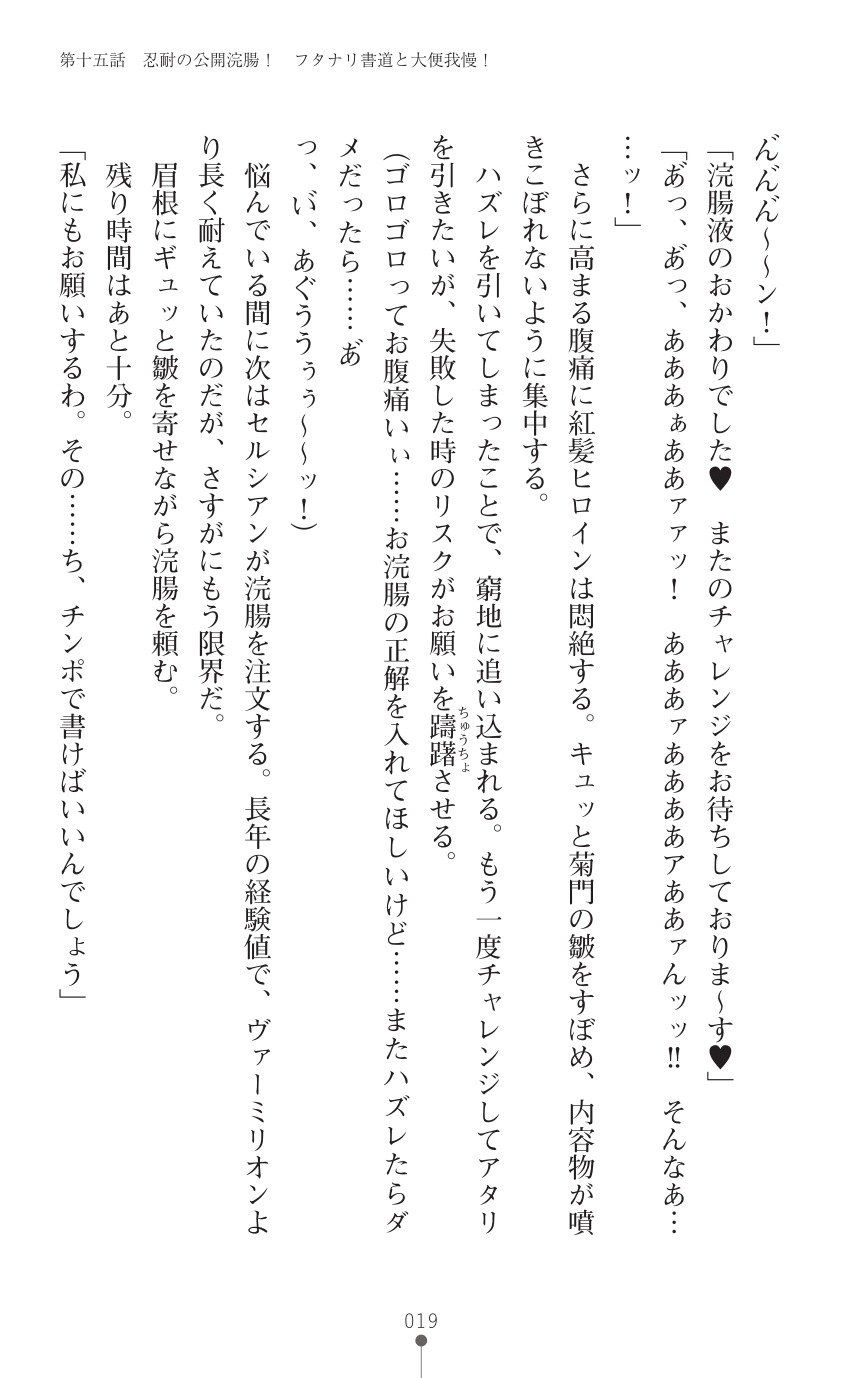 第十五話　忍耐の公開浣腸！　フタナリ書道と大便我慢！
ん゛ん゛ん゛～～ン！」
「浣腸液のおかわりでした♥　またのチャレンジをお待ちしておりま～す♥」
「あ゛っ、あ゛っ、あああぁああァァッ！　あああァあああアああァんッッ‼　そんなぁ…
…ッ！」
　さらに高まる腹痛に紅髪ヒロインは悶絶する。キュッと菊門の皺をすぼめ、内容物が噴
きこぼれないように集中する。
　ハズレを引いてしまったことで、窮地に追い込まれる。もう一度チャレンジしてアタリ
を引きたいが、失敗した時のリスクがお願いを躊躇させる。
ちゅうちょ
（ゴロゴロってお腹痛いぃ……お浣腸の正解を入れてほしいけど……またハズレたらダ
メだったら……あ゛
っ、い゛、あぐううぅぅ～～ッ！）
　悩んでいる間に次はセルシアンが浣腸を注文する。長年の経験値で、ヴァーミリオンよ
り長く耐えていたのだが、さすがにもう限界だ。
　眉根にギュッと皺を寄せながら浣腸を頼む。
　残り時間はあと十分。
「私にもお願いするわ。その……ち、チンポで書けばいいんでしょう」
019